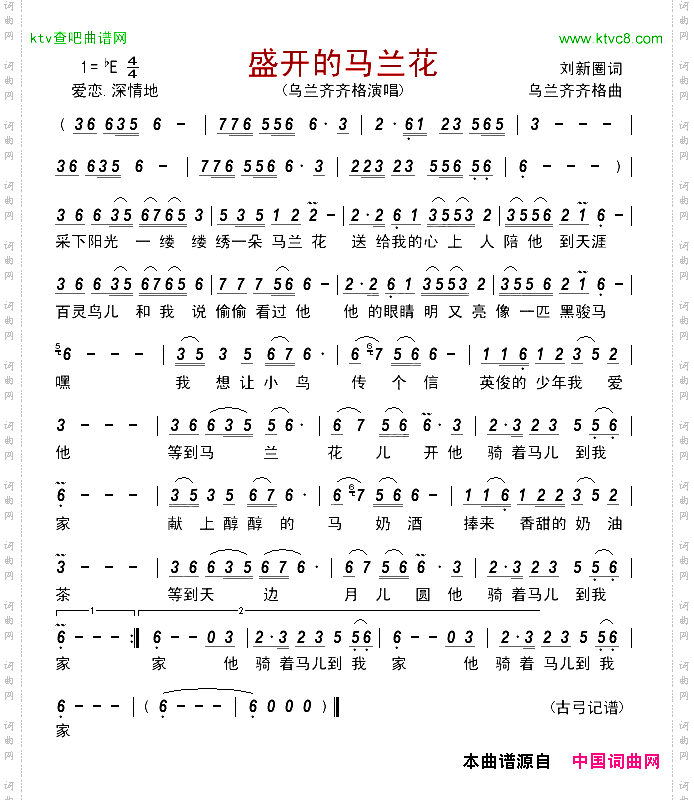 ktv查吧曲谱网
www.ktvc8.com
盛开的马兰花
1=♭E 4/4
刘新圈词
爱恋.深情地
(乌兰齐齐格演唱)
乌兰齐齐格曲
( 36 635 6 - | 776 556 6·3 | 2·61 23 565 | 3 - - - |
36 635 6 - | 776 556 6·3 | 223 23 556 56 | 6 - - - )
36 6 35 6765 3 | 5 35 1 2 2 - | 2·2 6 1 3553 2 | 3556 5 2 1 6·
采下阳光 一 缕 缕 绣一朵 马兰 花 送 给我的心 上 人 陪他 到天涯
36 6 35 6765 3 | 7 7 7 56 6 - | 2·261 3553 2 | 3556 5 2 1 6·
百灵鸟儿 和 我 说 偷偷 看过 他 他 的眼睛 明 又 亮 像 一匹 黑骏马
6 - - - | 35 35 676· | 6 7 56 6 - | 116 12 35 2
嘿 我 想让小鸟 传 个 信 英俊的 少年我 爱
3 - - - | 36 635 56· | 67 56 6·3 | 2·3 235 56
他 等到马 兰 花 儿 开他 骑 着马儿 到我
6 - - - | 335 35 676· | 6 7 56 6 - | 116 122 35 2
家 献 上 醇醇 的 马 奶酒 捧来 香甜的 奶 油
3 - - - | 36 635 56· | 67 56 6·3 | 2·3 235 56
茶 等到天 边 月 儿 圆 他 骑 着马儿 到我
1 2
6 - - - :‖ 6 - - 03 | 2·3 235 56 | 6 - - 03 | 2·3 235 56
家 家 他 骑 着马儿到 我 家 他 骑 着马儿到 我
6 - - - | ( 6 - - - | 6 0 0 0 ) ‖
家
(古弓记谱)
本曲谱源自 中国词曲网
词曲网